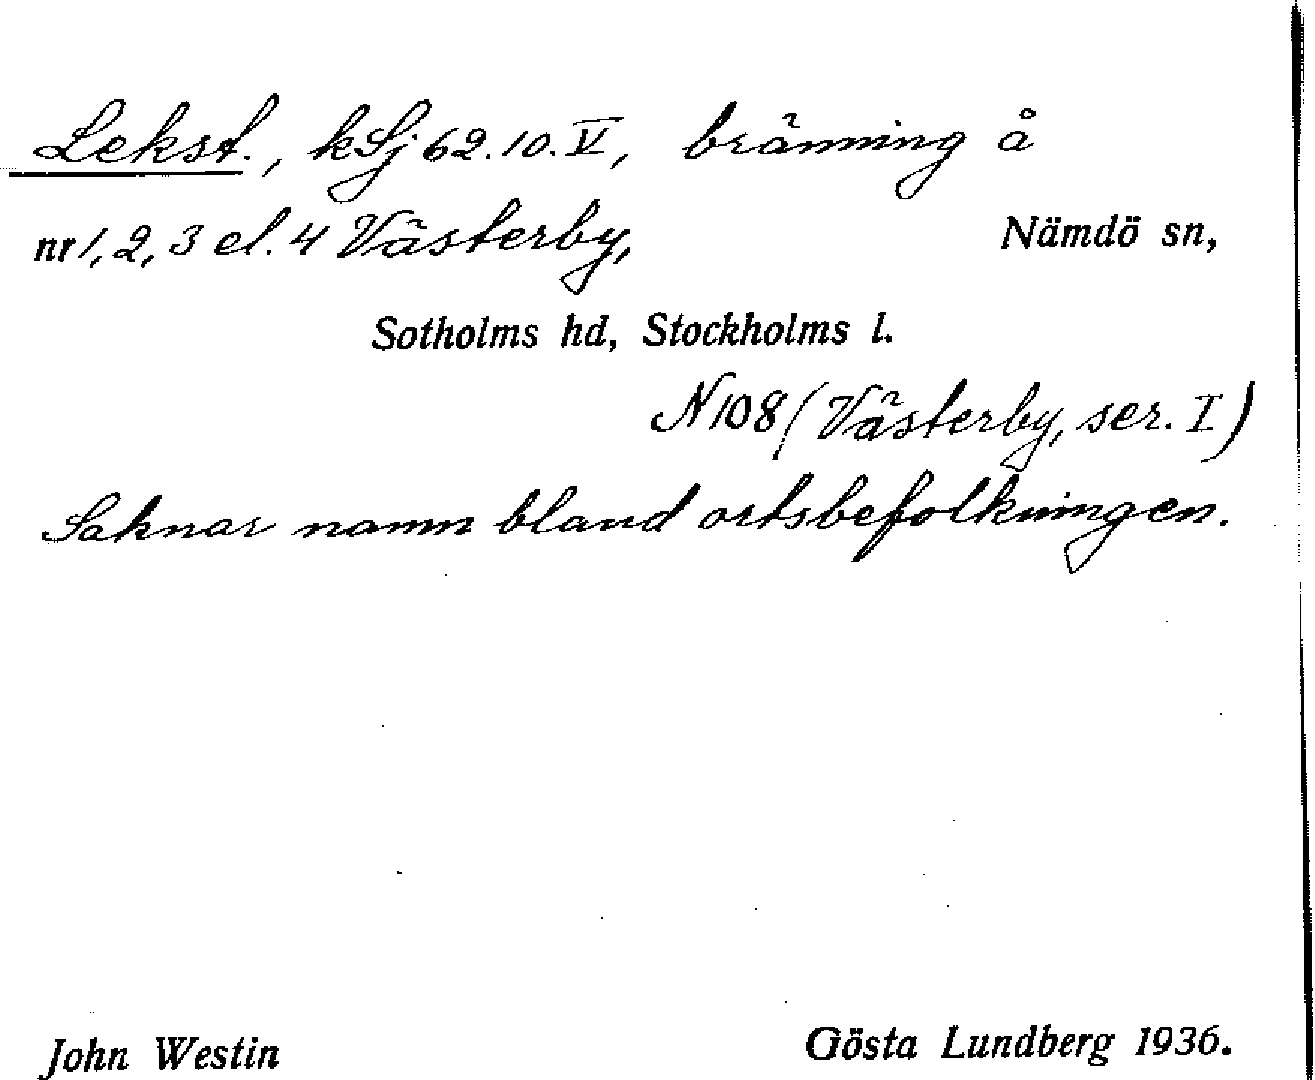 Lekst., kSj 62.10.V, bränning å
nr 1, 2, 3 el. 4 Västerby, Nämdö sn,
Sotholms hd, Stockholms l.
N 108 (Västerby, ser. I)
Saknar namn bland ortsbefolkningen.
John Westin Gösta Lundberg 1936.